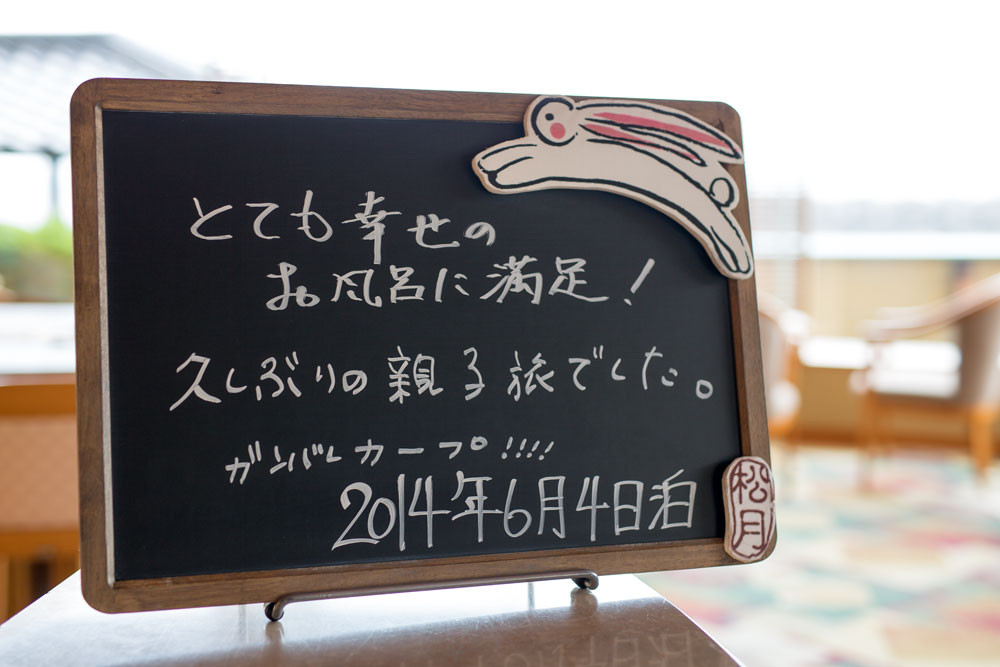 とても幸せの
お風呂に満足！
久しぶりの親子旅でした。
ガンバレカープ!!!!
2014年6月4日泊
松月